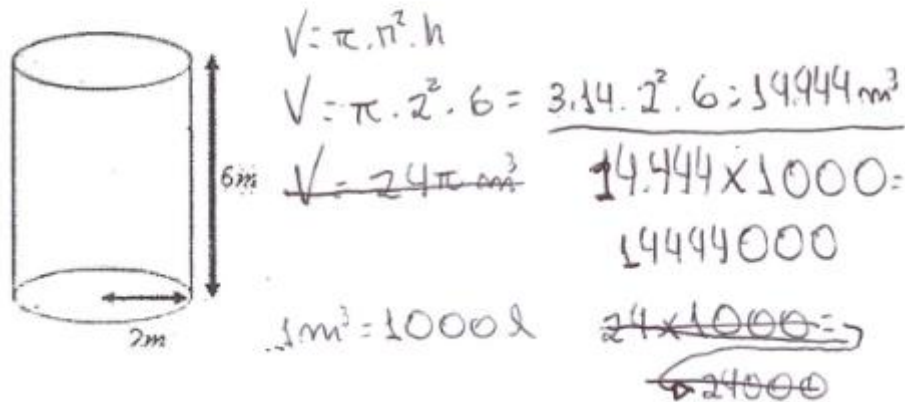 V = π . r² . h
V = π . 2² . 6 = 3.14 . 2² . 6 = 14.444 m³
V = 24π m³
14.444 x 1000 =
14444000
6m
2m
1m³ = 1000 l
24 x 1000 =
24000